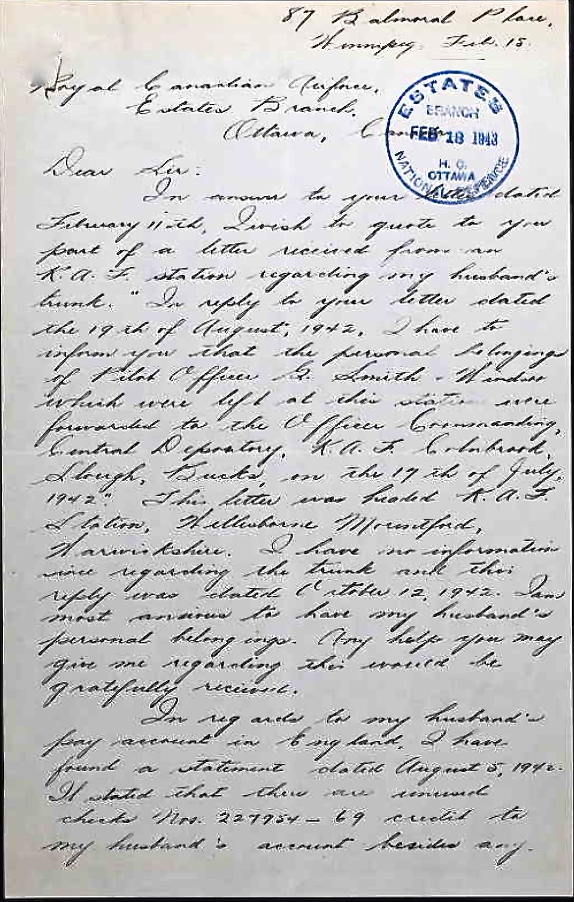 87 Balmoral Place,
Winnipeg. Feb. 15.
Royal Canadian Airforce,
Estates Branch,
Ottawa, Canada
ESTATES
BRANCH
FEB 18 1943
H. Q.
OTTAWA
NATIONAL DEFENCE
Dear Sir:
In answer to your letter dated
February 11th, I wish to quote to you
part of a letter received from an
R.A.F. station regarding my husband's
trunk. "In reply to your letter dated
the 19th of August, 1942, I have to
inform you that the personal belongings
of Pilot Officer G. Smith-Windsor
which were left at this station were
forwarded to the Officer Commanding,
Central Depository, R.A.F. Colnbrook,
Slough, Bucks, on the 17th of July,
1942". This letter was headed R.A.F.
Station, Wellesborne Mountford,
Warwickshire. I have no information
since regarding the trunk and this
reply was dated October 12, 1942. I am
most anxious to have my husband's
personal belongings. Any help you may
give me regarding this would be
gratefully received.
In regards to my husband's
pay account in England, I have
found a statement dated August 5, 1942.
It stated that there are unused
checks Nos. 227954-69 credit to
my husband's account besides any.